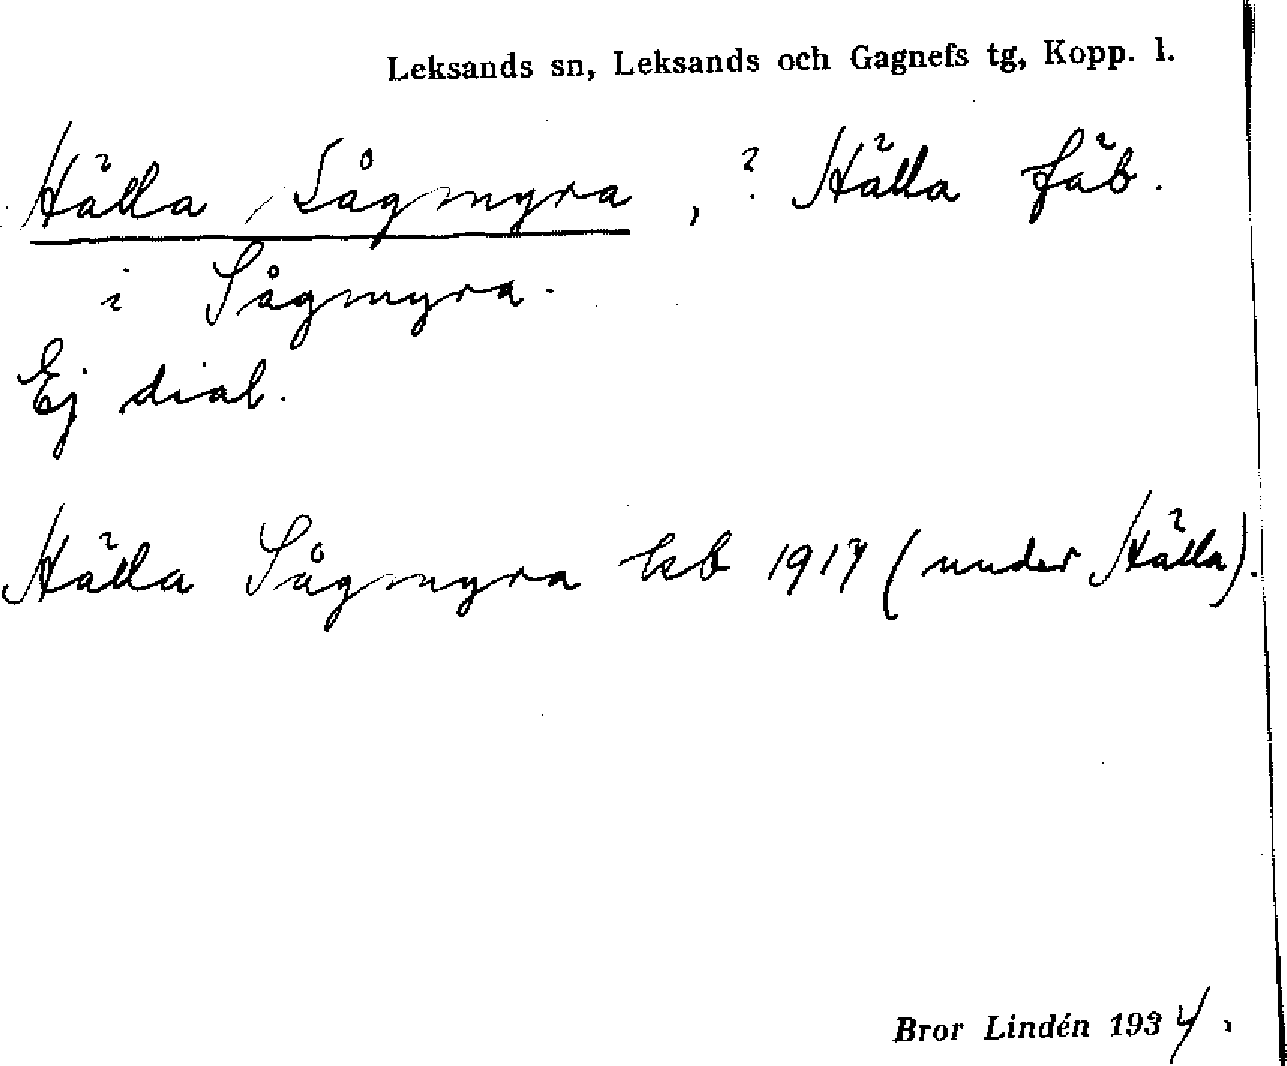 Leksands sn, Leksands och Gagnefs tg, Kopp. l.
Hälla Sågmyra, ? Hälla fäb.
i Sågmyra.
Ej dial.
Hälla Sågmyra kb 1917 (under Hälla).
Bror Lindén 1934.